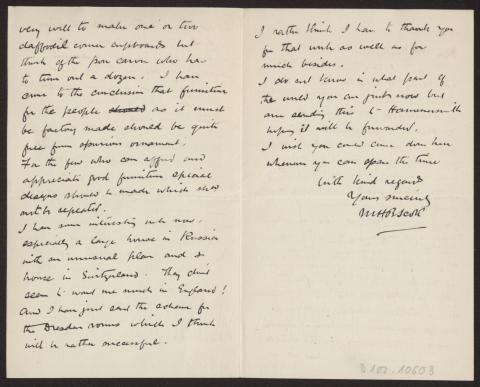 very well to make one or two
daffodil corner cupboards but
think of the poor carver who has
to turn out a dozen. I have
come to the conclusion that furniture
for the people should as it must
be factory made should be quite
free from spurious ornament.
For the few who can afford and
appreciate good furniture special
designs should be made which should
not be repeated.
I have some interesting work now.
especially a large house in Russia
with an unusual plan and a
house in Switzerland. They don't
seem to want me much in England!
And I have just sent the scheme for
the Dresden rooms which I think
will be rather successful.
I rather think I have to thank you
for that work as well as for
much besides.
I do not know in what part of
the world you are just now but
am sending this to Hammersmith
hoping it will be forwarded.
I wish you could come down here
whenever you can spare the time
With kind regards
Yours sincerely
MHBScott
D102.10603